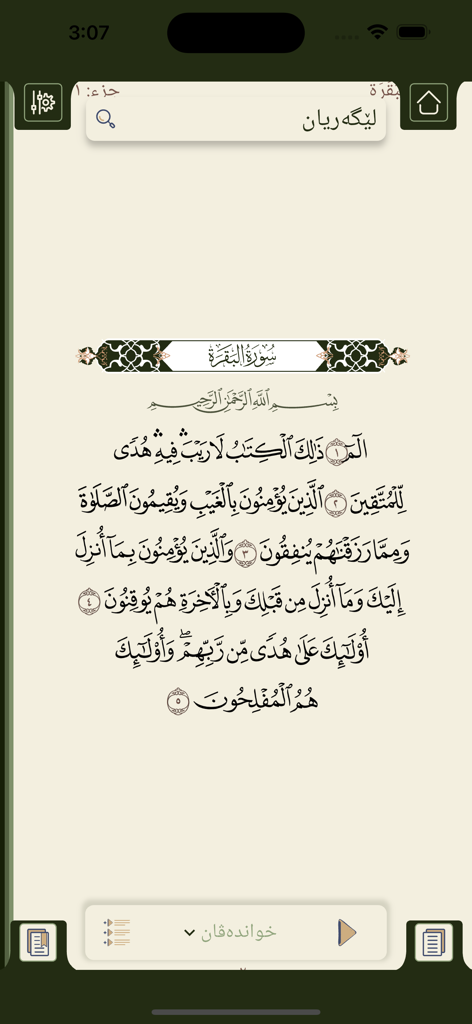 3:07
جزء: ١
لێگەریان
سُورَةُ البَقَرَةِ
بِسْمِ اللَّهِ الرَّحْمَٰنِ الرَّحِيمِ
الٓمٓ ١ ذَٰلِكَ الْكِتَٰبُ لَا رَيْبَ ۛ فِيهِ ۛ هُدًى
لِّلْمُتَّقِينَ ٢ الَّذِينَ يُؤْمِنُونَ بِالْغَيْبِ وَيُقِيمُونَ الصَّلَوٰةَ
وَمِمَّا رَزَقْنَٰهُمْ يُنفِقُونَ ٣ وَالَّذِينَ يُؤْمِنُونَ بِمَآ أُنزِلَ
إِلَيْكَ وَمَآ أُنزِلَ مِن قَبْلِكَ وَبِالْأَخِرَةِ هُمْ يُوقِنُونَ ٤
أُوْلَٰٓئِكَ عَلَىٰ هُدًى مِّن رَّبِّهِمْ ۖ وَأُوْلَٰٓئِكَ
هُمُ الْمُفْلِحُونَ ٥
خواندەڤان